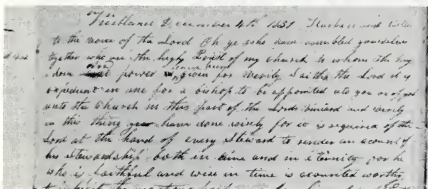 Kirtland December 4th 1831 Hearken and listen
to the voice of the Lord Oh ye who have assembled yourselves
together who are the high Priests of my church to whom the king
dom and power given for verily saith the Lord it is
expedient in me for a bishop to be appointed unto you or of you
unto the church in this part of the Lords vineyard and verily
in this thing ye have done wisely for it is required of the
Lord at the hand of every Steward to render an account of
his stewardship both in time and in eternity for he
who is faithful and wise in time is counted worthy
to inherit the